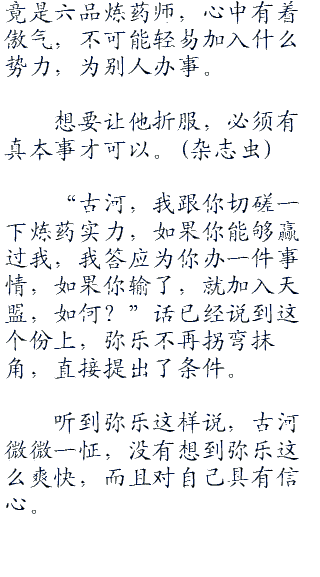 竟是六品炼药师，心中有着
傲气，不可能轻易加入什么
势力，为别人办事。
想要让他折服，必须有
真本事才可以。(杂志虫)
“古河，我跟你切磋一
下炼药实力，如果你能够赢
过我，我答应为你办一件事
情，如果你输了，就加入天
盟，如何？”话已经说到这
个份上，弥乐不再拐弯抹
角，直接提出了条件。
听到弥乐这样说，古河
微微一怔，没有想到弥乐这
么爽快，而且对自己具有信
心。